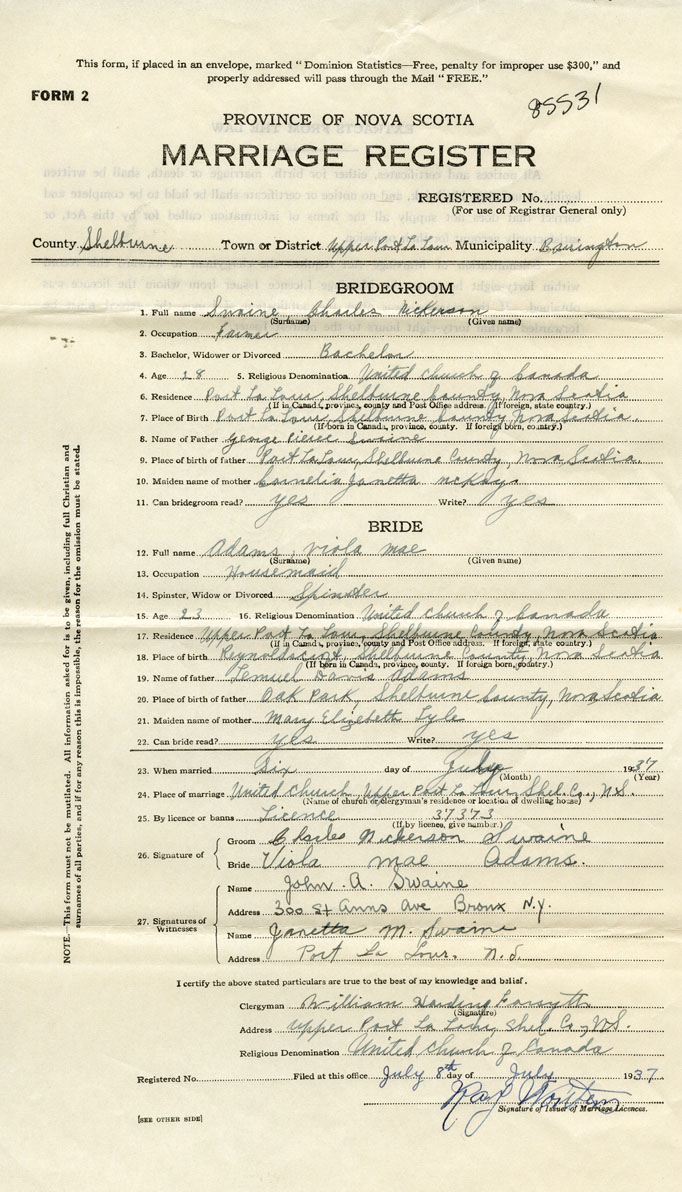 This form, if placed in an envelope, marked "Dominion Statistics—Free, penalty for improper use $300," and
properly addressed will pass through the Mail "FREE."
FORM 2
85531
PROVINCE OF NOVA SCOTIA
MARRIAGE REGISTER
REGISTERED No.
(For use of Registrar General only)
County Shelburne Town or District Upper Port La Tour Municipality Barrington
BRIDEGROOM
1. Full name Swaine Charles Nickerson
(Surname) (Given name)
2. Occupation Farmer
3. Bachelor, Widower or Divorced Bachelor
4. Age 28 5. Religious Denomination United Church of Canada
6. Residence Port La Tour, Shelburne County, Nova Scotia
(If in Canada, province, county and Post Office address. If foreign, state country.)
7. Place of Birth Port La Tour, Shelburne County, Nova Scotia.
(If born in Canada, province, county. If foreign born, country.)
8. Name of Father George Pierce Swaine
9. Place of birth of father Port La Tour, Shelburne County, Nova Scotia.
10. Maiden name of mother Cornelia Janetta McKay.
11. Can bridegroom read? yes Write? yes
BRIDE
12. Full name Adams, Viola Mae
(Surname) (Given name)
13. Occupation Housemaid
14. Spinster, Widow or Divorced Spinster
15. Age 23 16. Religious Denomination United Church of Canada
17. Residence Upper Port La Tour, Shelburne County, Nova Scotia
(If in Canada, province, county and Post Office address. If foreign, state country.)
18. Place of birth Reynoldscroft, Shelburne County, Nova Scotia
(If born in Canada, province, county. If foreign born, country.)
19. Name of father Lemuel Davis Adams
20. Place of birth of father Oak Park, Shelburne County, Nova Scotia
21. Maiden name of mother Mary Elizabeth Lyle
22. Can bride read? yes Write? yes
23. When married Six day of July 1937
(Month) (Year)
24. Place of marriage United Church, Upper Port La Tour, Shel. Co., N.S.
(Name of church or clergyman's residence or location of dwelling house)
25. By licence or banns Licence 37373
(If by licence, give number.)
26. Signature of
Groom Charles Nickerson Swaine
Bride Viola Mae Adams.
27. Signatures of Witnesses
Name John. A. Swaine
Address 300 St Anns Ave Bronx N.Y.
Name Janetta M. Swaine
Address Port La Tour. N.S.
I certify the above stated particulars are true to the best of my knowledge and belief.
Clergyman William Harding Forsyth
(Signature)
Address Upper Port La Tour, Shel. Co., N.S.
Religious Denomination United Church of Canada
Registered No. Filed at this office July 8th day of July 1937
Ray
Signature of Issuer of Marriage Licences.
[SEE OTHER SIDE]
NOTE.—This form must not be mutilated. All information asked for is to be given, including full Christian and
surnames of all parties, and if for any reason this is impossible, the reason for the omission must be stated.